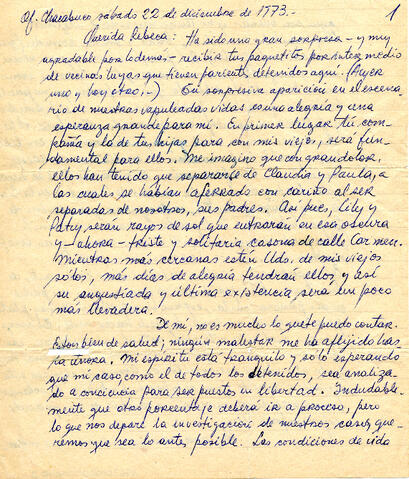 Of. Chacabuco sábado 22 de diciembre de 1973.-
1
Querida Rebeca: Ha sido una gran sorpresa - y muy
agradable por lo demás - recibir tus paquetitos por intermedio
de vecinos tuyos que tienen parientes detenidos aquí. (Ayer
uno y hoy otro.-) Tu sorpresiva aparición en el escena-
rio de nuestras vapuleadas vidas es una alegría y una
esperanza grande para mí. En primer lugar tu com-
pañía y la de tus hijas para con mis viejos, será fun-
damental para ellos. Me imagino que con gran dolor,
ellos han tenido que separarse de Claudia y Paula, a
las cuales se habían aferrado con cariño al ser
separadas de nosotros, sus padres. Así pues, Lily y
Paty serán rayos de sol que entrarán en esa oscura
y - ahora - triste y solitaria casona de calle Carmen.
Mientras más cercanas estén Uds. de mis viejos
sólos, más días de alegría tendrán ellos y así
su angustiada y última existencia será un poco
más llevadera.
De mí, no es mucho lo que te puedo contar.
Estoy bien de salud; ningún malestar me ha afligido has-
ta ahora. Mi espíritu está tranquilo y sólo esperando
que mi caso, como el de todos los detenidos, sea analiza-
do a conciencia para ser puestos en libertad. Indudable-
mente que otro porcentaje deberá ir a proceso, pero
lo que nos depare la investigación de nuestros casos, que-
remos que sea lo antes posible. Las condiciones de vida